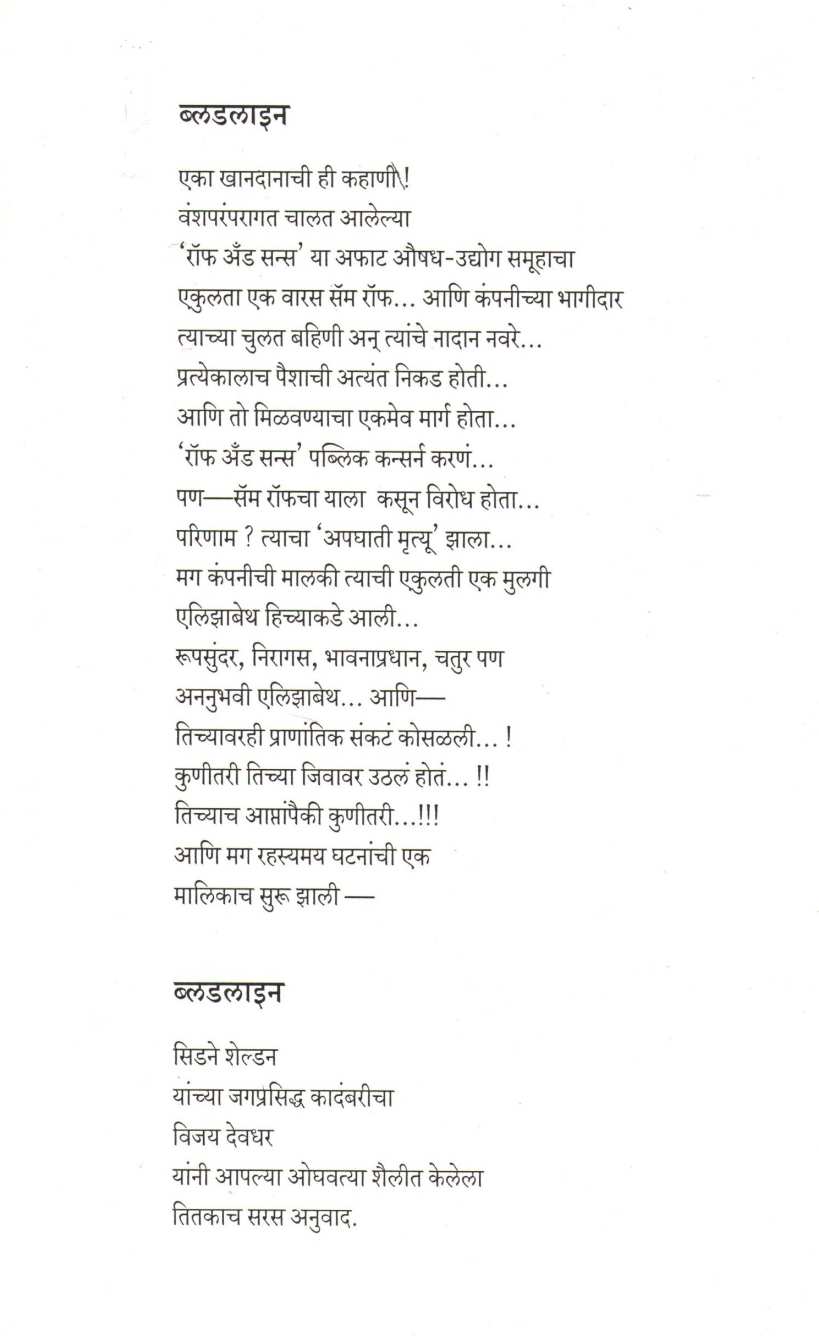 ब्लडलाइन
एका खानदानाची ही कहाणी!
वंशपरंपरागत चालत आलेल्या
‘रॉफ अँड सन्स’ या अफाट औषध-उद्योग समूहाचा
एकुलता एक वारस सॅम रॉफ... आणि कंपनीच्या भागीदार
त्याच्या चुलत बहिणी अन् त्यांचे नादान नवरे...
प्रत्येकालाच पैशाची अत्यंत निकड होती...
आणि तो मिळवण्याचा एकमेव मार्ग होता...
‘रॉफ अँड सन्स’ पब्लिक कन्सर्न करणं...
पण—सॅम रॉफचा याला कसून विरोध होता...
परिणाम ? त्याचा ‘अपघाती मृत्यू’ झाला...
मग कंपनीची मालकी त्याची एकुलती एक मुलगी
एलिझाबेथ हिच्याकडे आली...
रूपसुंदर, निरागस, भावनाप्रधान, चतुर पण
अननुभवी एलिझाबेथ... आणि—
तिच्यावरही प्राणांतिक संकटं कोसळली... !
कुणीतरी तिच्या जिवावर उठलं होतं... !!
तिच्याच आप्तांपैकी कुणीतरी...!!!
आणि मग रहस्यमय घटनांची एक
मालिकाच सुरू झाली —
ब्लडलाइन
सिडने शेल्डन
यांच्या जगप्रसिद्ध कादंबरीचा
विजय देवधर
यांनी आपल्या ओघवत्या शैलीत केलेला
तितकाच सरस अनुवाद.